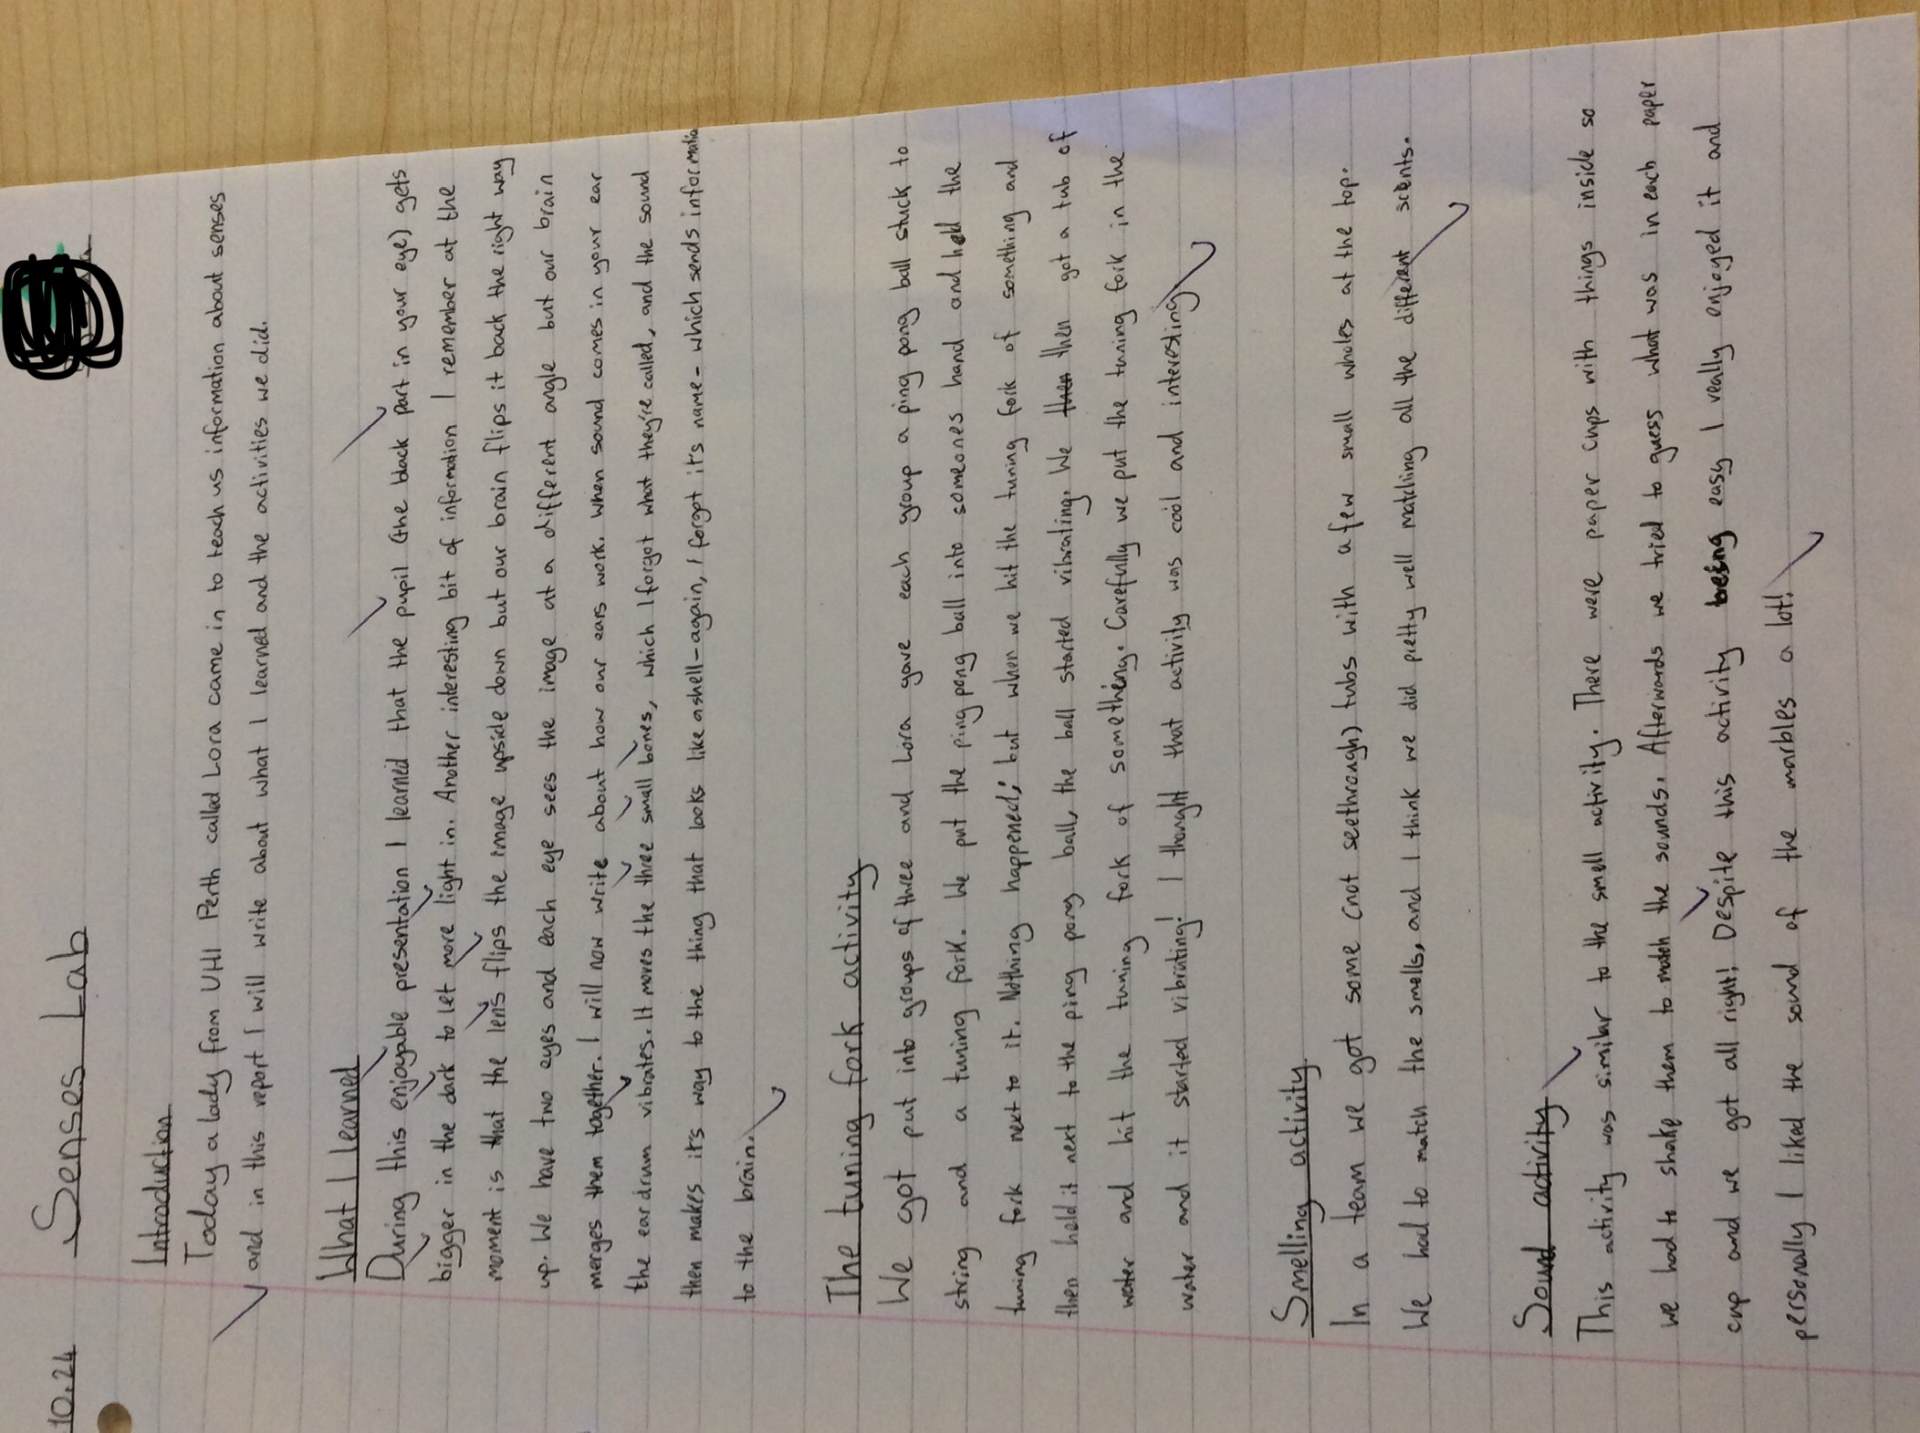 10.24 Senses Lab
Introduction
Today a lady from UHI Perth called Lora came in to teach us information about senses
and in this report I will write about what I learned and the activities we did.
What I learned
During this enjoyable presentation I learned that the pupil (the black part in your eye) gets
bigger in the dark to let more light in. Another interesting bit of information I remember at the
moment is that the lens flips the image upside down but our brain flips it back the right way
up. We have two eyes and each eye sees the image at a different angle but our brain
merges them together. I will now write about how our ears work. When sound comes in your ear
the ear drum vibrates. It moves the three small bones, which I forgot what they're called, and the sound
then makes it's way to the thing that looks like a shell - again, I forgot it's name - which sends informatio
to the brain.
The tuning fork activity
We got put into groups of three and Lora gave each group a ping pong ball stuck to
string and a tuning fork. We put the ping pong ball into someones hand and held the
tuning fork next to it. Nothing happened; but when we hit the tuning fork of something and
then held it next to the ping pong ball, the ball started vibrating. We then then got a tub of
water and hit the tuning fork of something. Carefully we put the tuning fork in the
water and it started vibrating! I thought that activity was cool and interesting
Smelling activity
In a team we got some (not seethrough) tubs with a few small wholes at the top.
We had to match the smells, and I think we did pretty well matching all the different scents.
Sound activity
This activity was similar to the smell activity. There were paper cups with things inside so
we had to shake them to match the sounds. Afterwards we tried to guess what was in each paper
cup and we got all right! Despite this activity being easy I really enjoyed it and
personally I liked the sound of the marbles a lot!